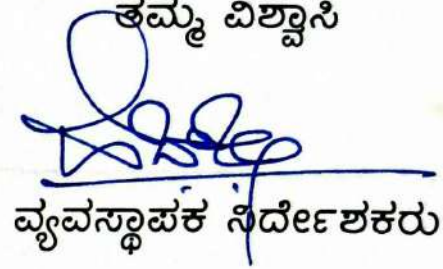 ತಮ್ಮ ವಿಶ್ವಾಸಿ
ವ್ಯವಸ್ಥಾಪಕ ನಿರ್ದೇಶಕರು